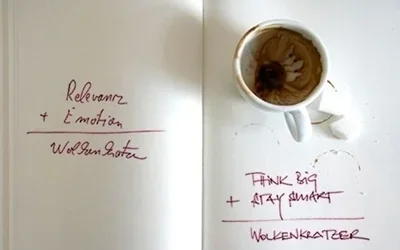 Relevanz
+ Emotion
Wolkenkratzer
THINK BIG
+ STAY SMART
WOLKENKRATZER